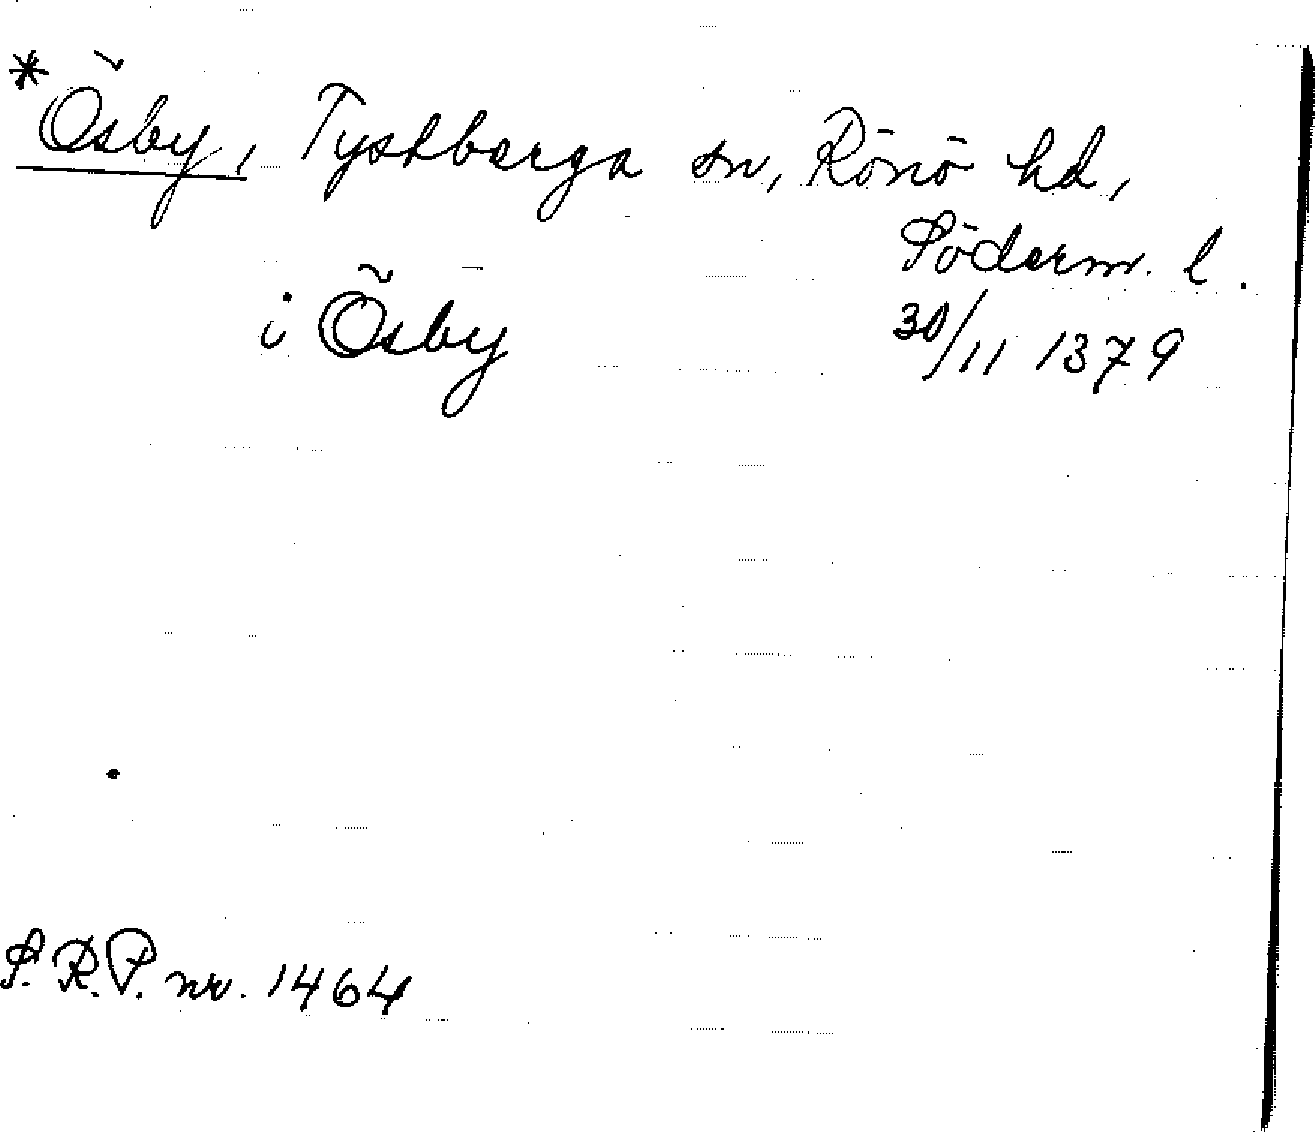 *Ösby, Tystberga sn, Rönö hd,
Söderm. l.
i Ösby 30/11 1379
S.R.P. nr. 1464